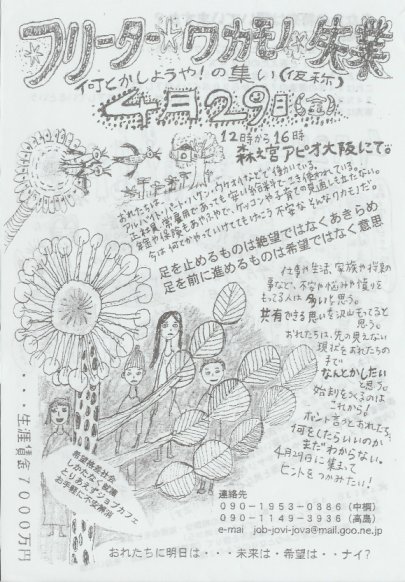 フリーター☆ワカモノ☆失業
何とかしようや!の集い(仮称)
4月29日(金)
12時から16時
森之宮アピオ大阪にて。
おれたちは、
アルバイト、パート、ハケン、ウケオイなどとして働いている。
正社員、常雇用であっても安い給料でこき使われている。
経営や保険もあやふやで、ケッコンや子育ての見通しも立たない。
今は何とかやっていけててもけっこう不安なそんなワカモノだ。
足を止めるものは絶望ではなくあきらめ
足を前に進めるものは希望ではなく意思
仕事や生活、家族や将来の
事などで、不安や悩みや憤りを
もってる人は多いと思う。
共有できる思いを沢山もってると
思う。
おれたちは、先の見えない
現状をおれたちの
手で
なんとかしたい
と思う。
始まりをつくるのは
これから!
ホントに言うとおれたちも
何をしたらいいのか
まだわからない。
4月29日に集まって
ヒントをつかみたい!
・・・生涯賃金7000万円
希望格差社会
しかたなく契職
とりあえずジョブカフェ
お手軽に不安解消
連絡先
090-1953-0886(中桐)
090-1149-3936(高島)
e-mai job-jovi-jova@mail.goo.ne.jp
おれたちに明日は・・・未来は・希望は・・ナイ?